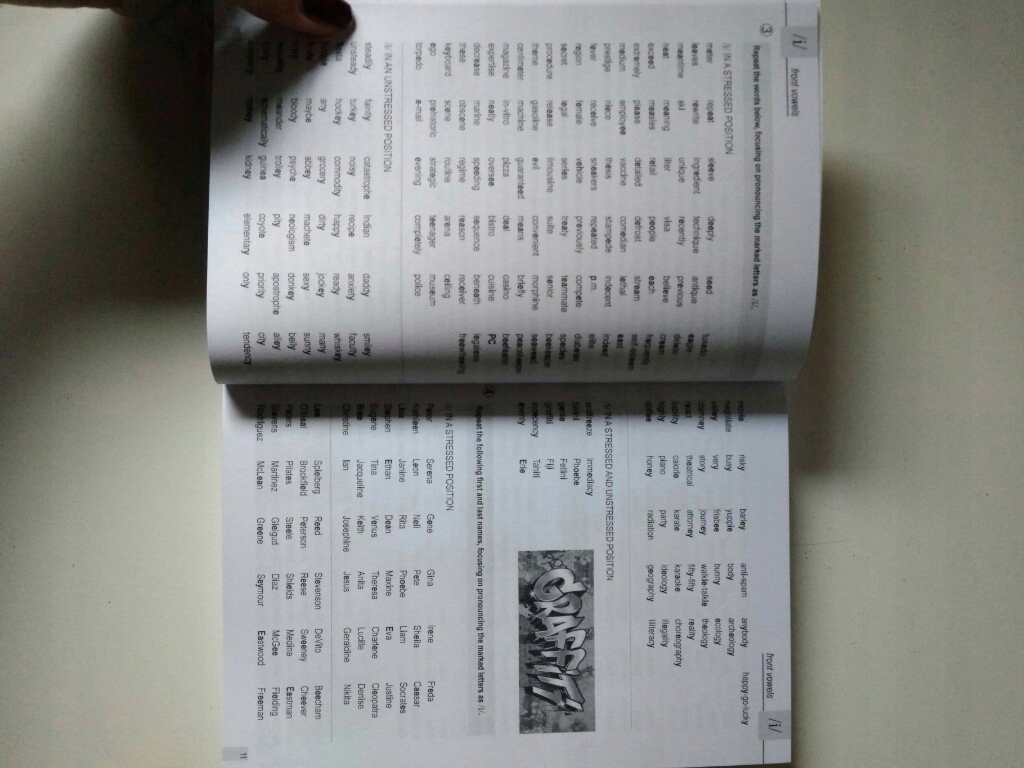 /i/ front vowels
3 Repeat the words below, focusing on pronouncing the marked letters as /i/.
/i/ IN A STRESSED POSITION
meter repeat sleeve deeply seed tuxedo
leaves rewrite ingredient technique antique eagle
meantime ski unique recently previous delete
meat meaning liter visa believe cream
exceed measles retail people each frequently
extremely please detailed defrost stream self-esteem
medium employee vaccine comedian lethal east
prestige niece thesis stampede indecent indeed
fever receive sneakers repeated p.m. elite
region female vehicle previously compete diabetes
secret legal series treaty teammate species
procedure release limousine suite senior beekeeper
theme gasoline evil convenient morphine seaweed
centimeter machine guaranteed means briefly peacekeeper
magazine in-vitro pizza deal casino beefeater
expertise neatly oversee bistro cuisine PC
decrease marine speeding sequence beneath legalese
these obscene regime reason receiver freewheeling
keyboard scene routine arena ceiling
ego prehistoric strategic teenager museum
torpedo e-mail evening completely police
/i/ IN AN UNSTRESSED POSITION
steadily faintly catastrophe Indian daddy smiley
unsteady turkey noisy recipe anxiety faculty
hockey commodity happy ready whiskey
any grocery dirty jockey many
maybe abbey machete sexy sunny
bloody psyche neologism donkey belly
meander trolley pity apostrophe alley
schematically guinea coyote priority city
kidney elementary only tendency
front vowels /i/
movie risky barley anti-spam anybody happy-go-lucky
negotiate busy yuppie body archeology
valley very frisbee bunny ecology
chimney story journey walkie-talkie theology
react theatrical attorney fifty-fifty reality
liability calorie karate karaoke choreography
highly piano party ideology illegality
coffee honey radiation geography illiteracy
/i/ IN A STRESSED AND UNSTRESSED POSITION
antifreeze immediacy
bikini Phoebe
genie Fellini
graffiti Fiji
indecency Tahiti
evenly Erie
GRAFFITI
4 Repeat the following first and last names, focusing on pronouncing the marked letters as /i/.
/i/ IN A STRESSED POSITION
Peter Serena Gene Gina Irene Freda
Kathleen Leon Neil Pete Sheila Caesar
Lisa Janine Rita Phoebe Liam Socrates
Stephen Ethan Dean Maxine Eva Justine
Eugene Tina Venus Theresa Charlene Cleopatra
Bree Jacqueline Keith Anita Lucille Denise
Christine Ian Josephine Jesus Geraldine Nikita
Lee Spielberg Reed Stevenson DeVito Beecham
O'Neal Brookfield Peterson Reese Sweeney Cheever
Peters Pilates Steele Shields Medina Eastman
Stevens Martinez Gielgud Diaz McGee Fielding
Rodriguez McLean Greene Seymour Eastwood Freeman
11